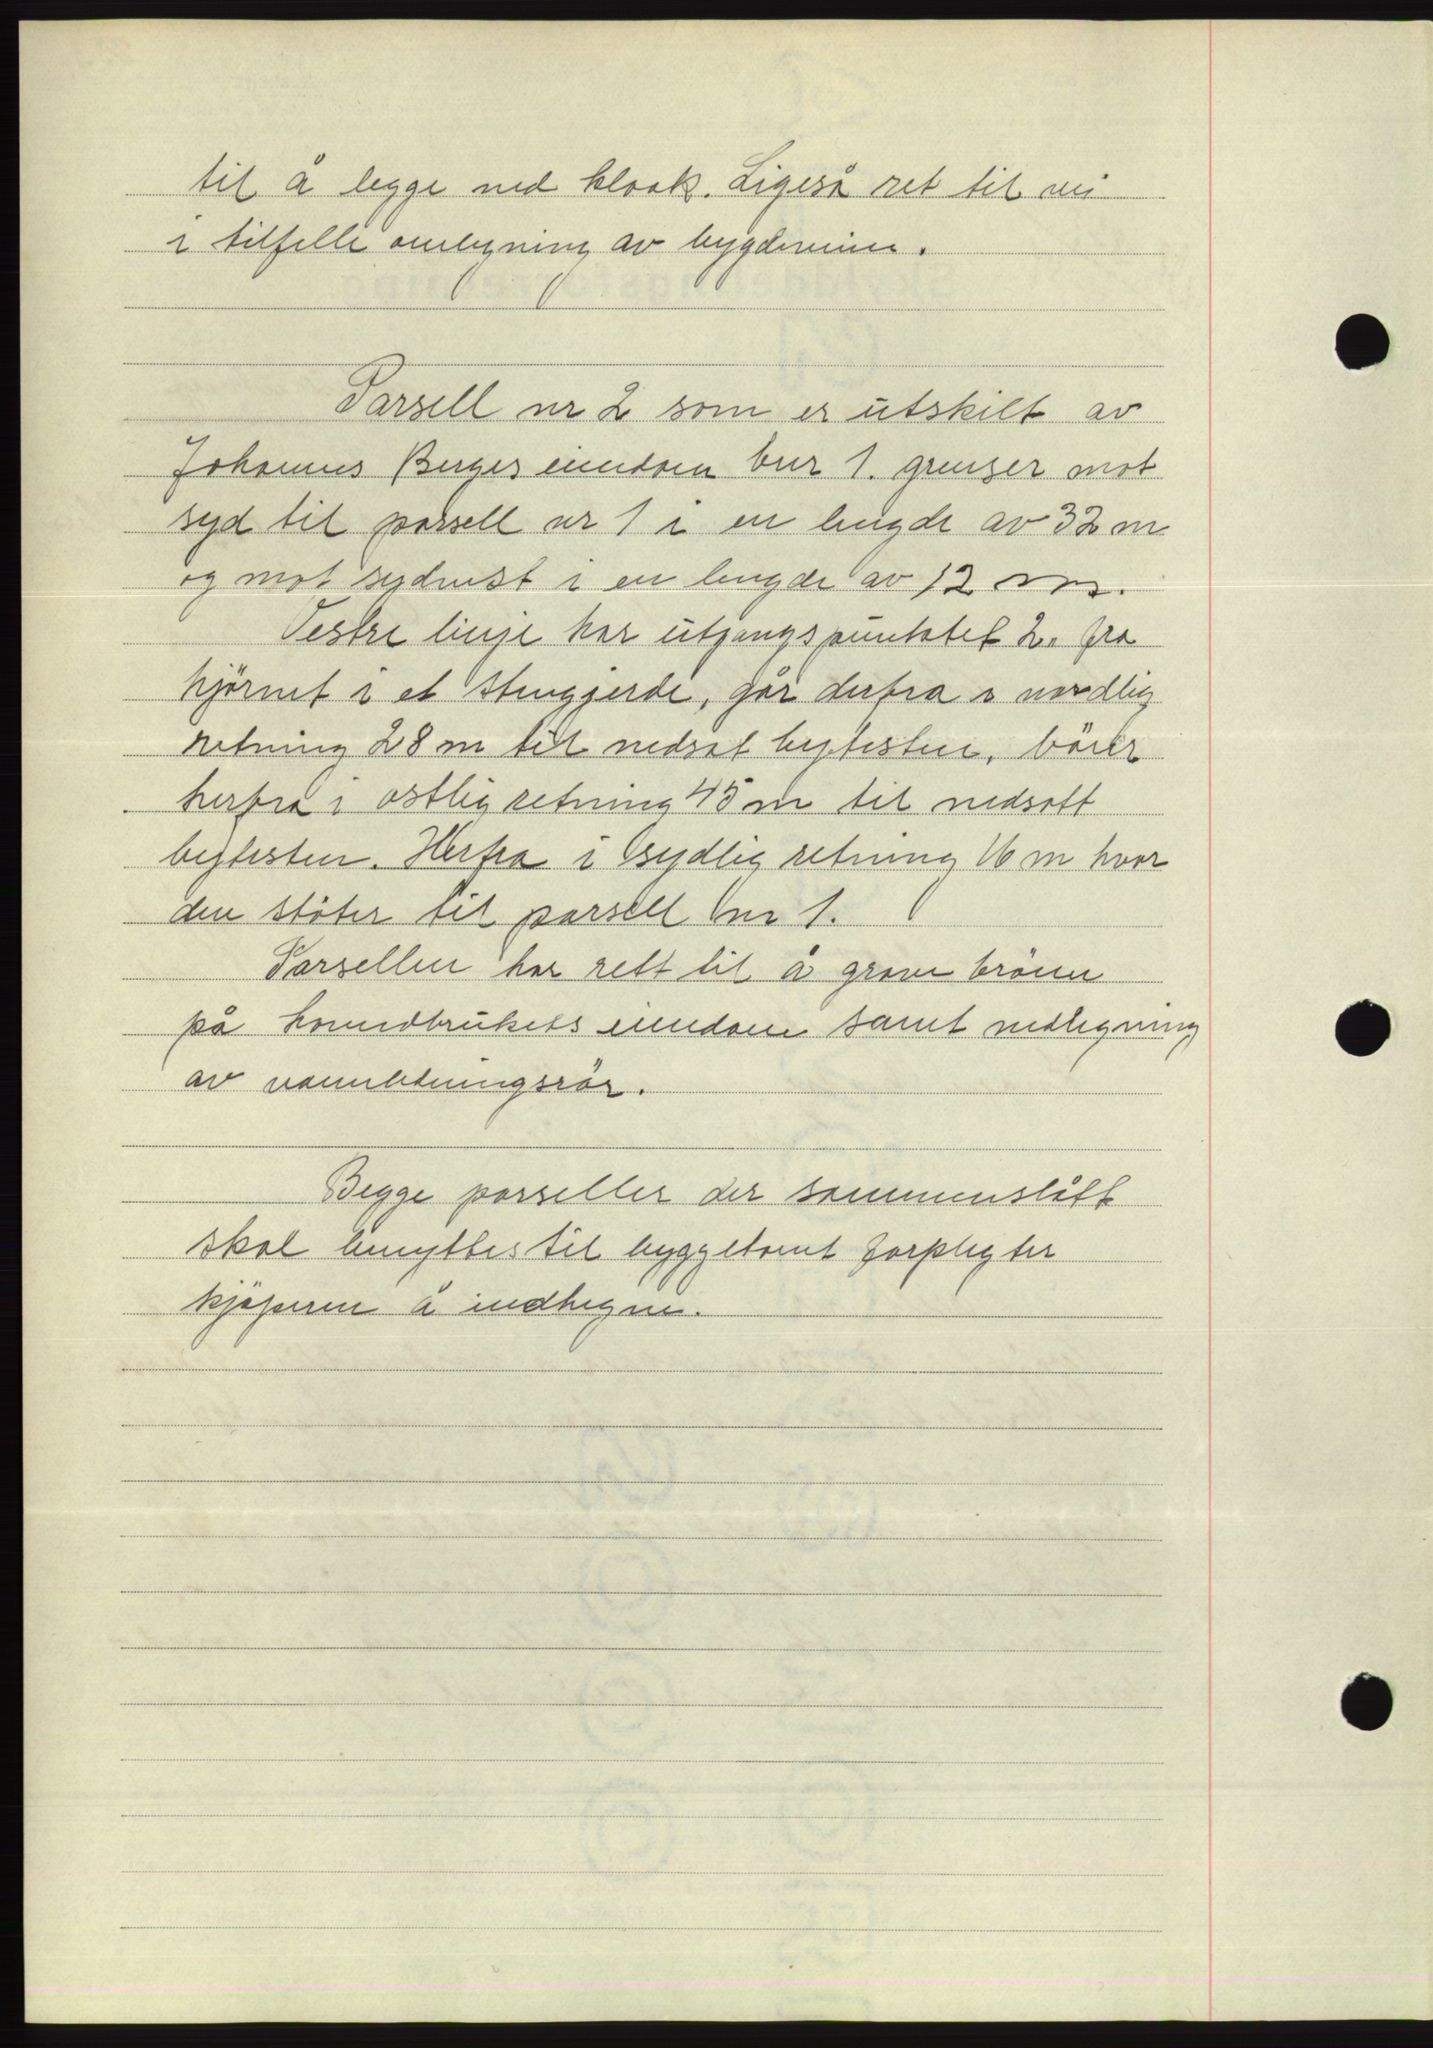 til å legge ned kloak. Ligeså ret til vei
i tilfelle omlegning av bygdeveien.
Parsell nr 2 som er utskilt av
Johannes Berges eiendom bnr 1. grenser mot
syd til parsell nr 1 i en lengde av 32 m
og mot sydvest i en lengde av 12 m.
Vestre linje har utgangspunktet 2. fra
hjörnet i et stengjerde, går derfra i nordlig
retning 28 m til nedsat bytesten, böier
herfra i ostlig retning 45 m til nedsatt
bytesten. Herfra i sydlig retning 16 m hvor
den stöter til parsell nr 1.
Parsellen har rett til å grave brönn
på hovedbrukets eiendom samt nedlegning
av vannledningsrör.
Begge parseller der sammenslått
skal benyttes til byggetomt forpligter
kjöperen å indhegne.